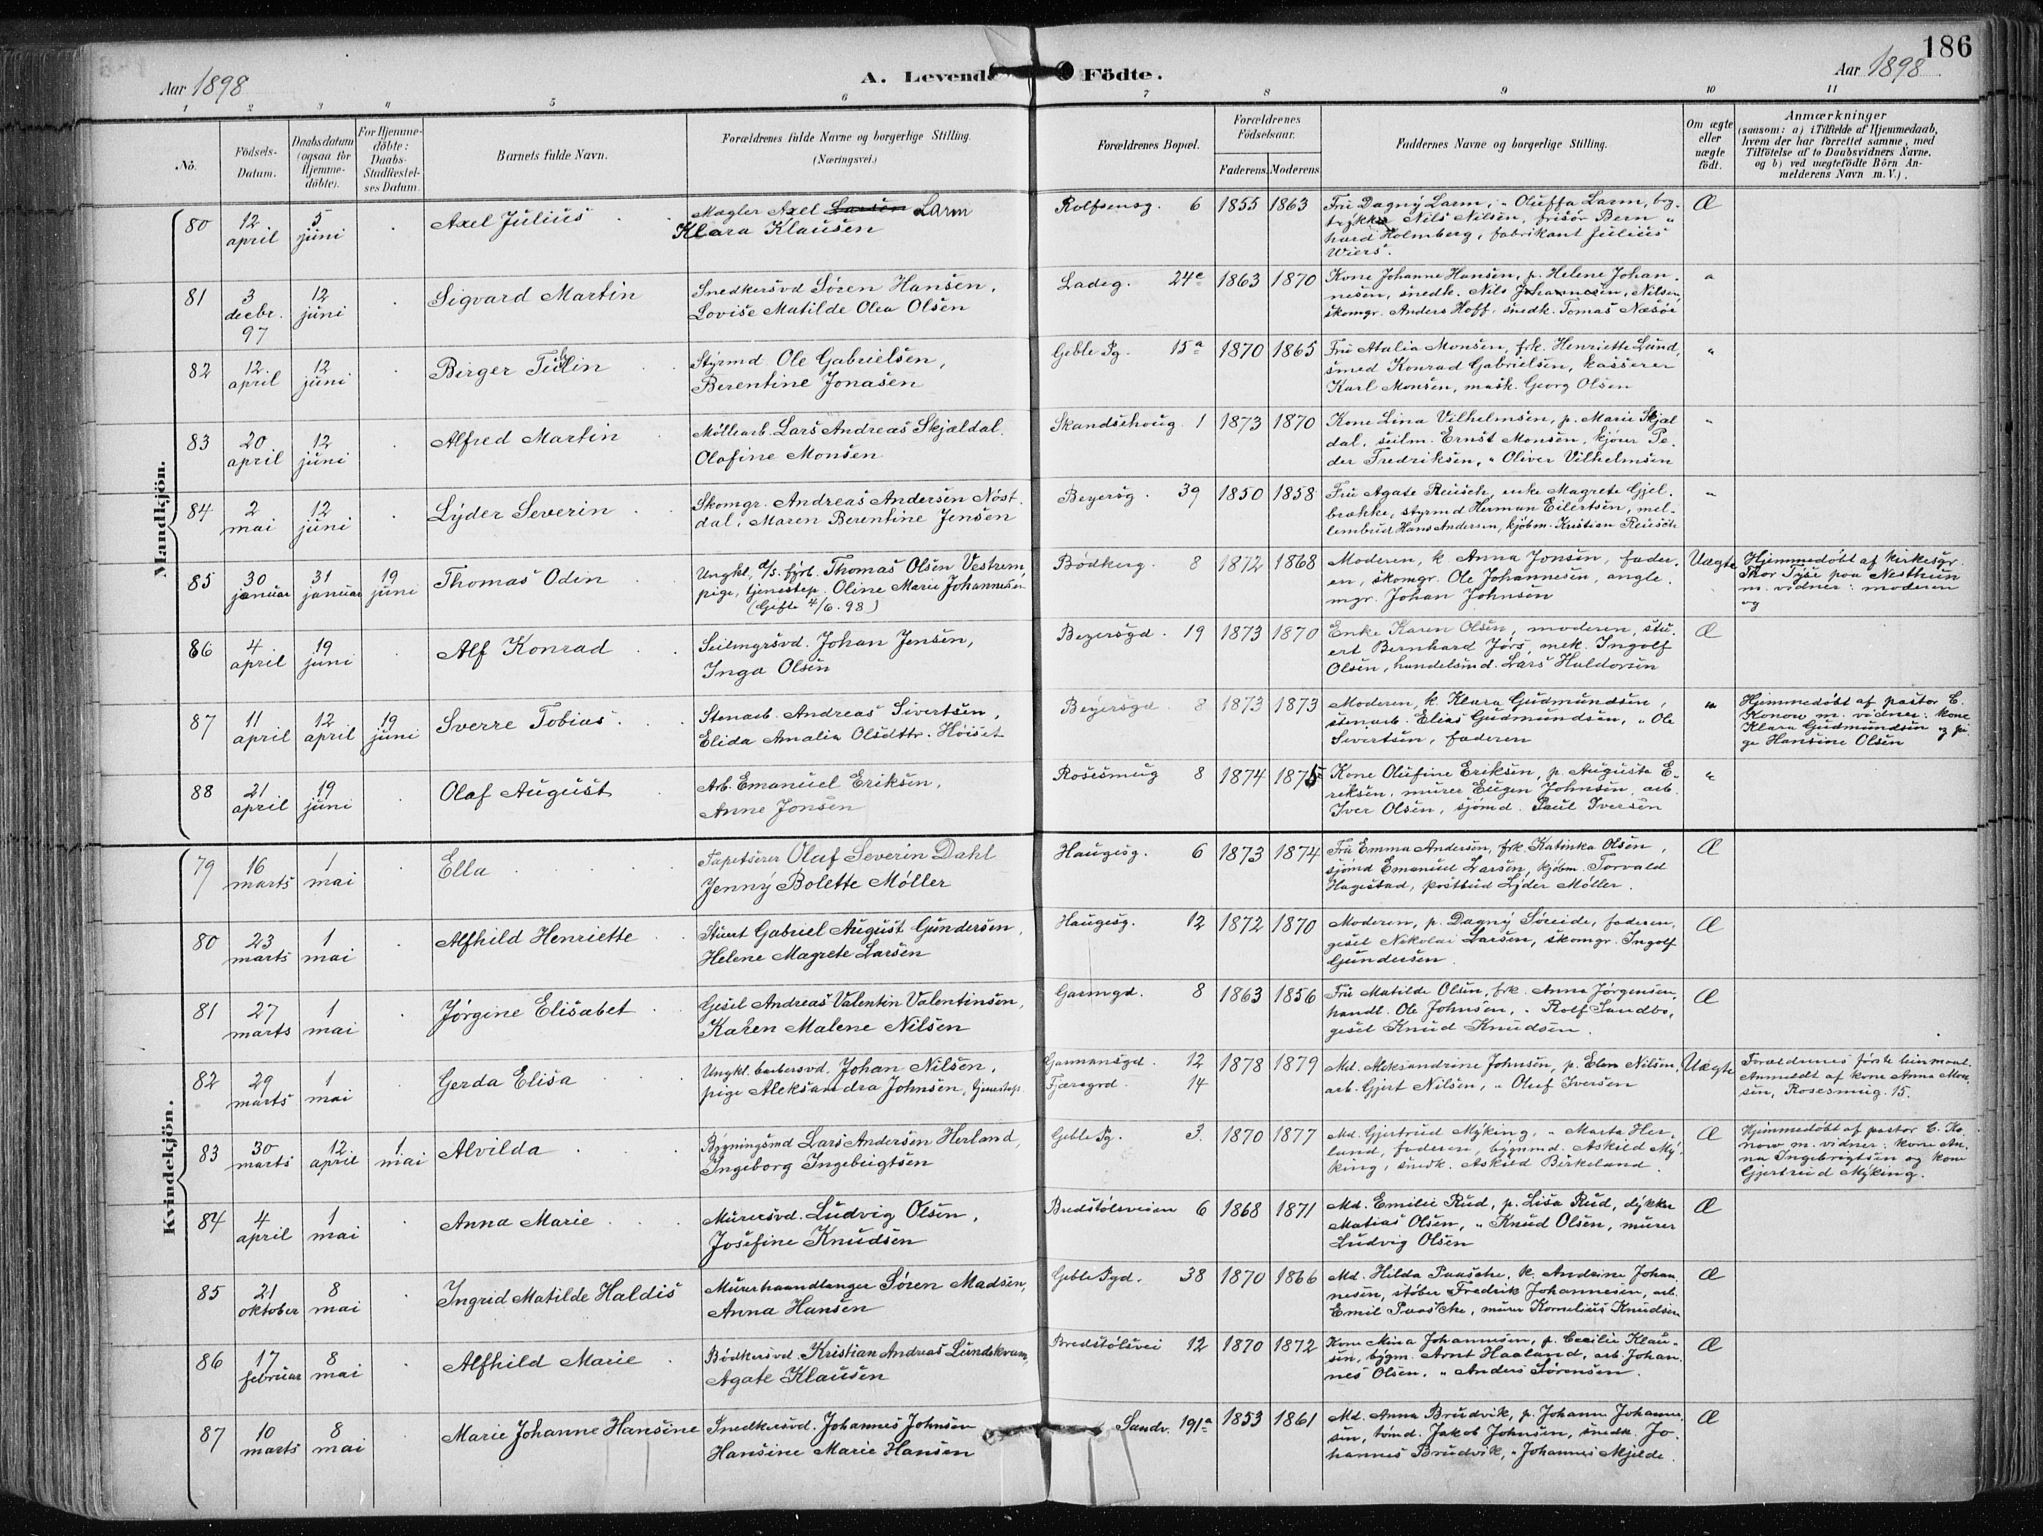 186
Aar 1898
A. Levende Födte.
Aar 1898
1 2 3 4 5 6 7 8 9 10 11
No.
Födsels-Datum.
Daabsdatum (ogsaa for Hjemmedöbte).
For Hjemmedöbte: Daabs-Stadfæstelses Datum.
Barnets fulde Navn.
Forældrenes fulde Navne og borgerlige Stilling.
(Næringsvei.)
Forældrenes Bopæl.
Forældrenes Födselsaar.
Faderens. Moderens.
Faddernes Navne og borgerlige Stilling.
Om ægte eller uægte födt.
Anmærkninger
(saasom: a) i Tilfælde af Hjemmedaab,
hvem der har forrettet samme, med
Tilföielse af to Daabsvidners Navne.
og b) ved uægtefödte Börn Anmelderens Navn m. V.).
Mandkjön.
80 12 april 5 juni Axel Julius Mægler Axel Larsen Larm
Klara Klausen
Rolfsensg. 6 1855 1863 Fru Dagny Larm, " Oluffa Larm, bog
trykker Nils Nilsen, frisör Bern
hard Holmberg, fabrikant Julius
Wiers. Æ
81 3 decbr. 97 12 juni Sigvard Martin Snedkersvd Sören Hansen,
Lovise Matilde Olea Olsen
Ladeg. 24c 1863 1870 Kone Johanne Hansen, p. Helene Johan
nesen, snedk. Nils Johannesen, Nilsen,
skomgr. Anders Hoff, snedk. Tomas Næsöe "
82 12 april 12 juni Birger Tidlin Styrmd Ole Gabrielsen,
Berentine Jonasen
Geble Pg. 15a 1870 1865 Fru Atalia Monsen, frk. Henriette Lund,
smed Konrad Gabrielsen, kasserer
Karl Monsen, mask. Georg Olsen "
83 20 april 12 juni Alfred Martin Møllearb. Lars Andreas Skjældal.
Olafine Monsen
Skandsehoug. 1 1873 1870 Kone Lina Vilhelmsen, p. Marie Skjal
dal, seilm. Ernst Monsen, kjörer Pe-
der Fredriksen, " Oliver Vilhelmsen "
84 2 mai 12 juni Lyder Severin Skomgr. Andreas Andersen Nöst
dal, Maren Berentine Jensen
Beyersg. 39 1850 1858 Fru Agate Reusch, enke Magrete Gjel
brække, styrmd Herman Eilertsen, mel-
lembud Hans Andersen, kjöbm. Kristian Reusch "
85 30 januar 31 januar 19 juni Thomas Odin Ungkl, d/s. fyrb. Thomas Olsen Vestrem
pige, tjenestep. Oline Marie Johannesen
(Gifte 4/6. 98)
Bödkerg. 8 1872 1868 Moderen, k Anna Jonsen, fader
en, skomgr. Ole Johannesen, angle.
mgr. Johan Johnsen Uægte
Hjemmedöbt af kirkesgr.
Thor Tyse paa Nesttun
m. vidner: moderen
og
86 4 april 19 juni Alf Konrad Seilmgrsvd. Johan Jensen,
Inga Olsen
Beyersgd. 19 1873 1870 Enke Karen Olsen, moderen, stu
ert Bernhard Jørs, mek. Ingolf
Olsen, handelsmd. Lars Haldorsen Æ
87 11 april 12 april 19 juni Sverre Tobias Stenarb. Andreas Sivertsen,
Elida Amalia Olsdttr. Höiset
Beyersgd. 8 1873 1873 Moderen, k. Klara Gudmundsen,
stenarb. Elias Gudmundsen, " Ole
Sivertsen, faderen "
Hjemmedöbt af pastor C.
Konow m. vidner: kone
Klara Gudmundsen og pi
ge Hansine Olsen
88 21 april 19 juni Olaf August Arb. Emanuel Eriksen,
Anne Jonsen
Rosesmug 8 1874 1875 Kone Olufine Eriksen, p. Augusta E-
riksen, murer Eugen Johnsen, arb.
Iver Olsen, sjömd. Paul Iversen "
Kvindekjön.
79 16 marts 1 mai Ella Tapetserer Oluf Severin Dahl
Jenny Bolette Møller
Haugesg. 6 1873 1874 Fru Emma Andersen, frk. Katinka Olsen,
sjömd Emanuel Larsen, kjöbm. Torvald
Hagestad, postbud Lyder Møller. Æ
80 23 marts 1 mai Alfhild Henriette Stuert Gabriel August Gundersen,
Helene Magrete Larsen
Haugesg. 12 1872 1870 Moderen, p. Dagny Söreide, faderen,
gesel Nikolai Larsen, skomgr. Ingolf
Gundersen. Æ
81 27 marts 1 mai Jørgine Elisabet Gesel Andreas Valentin Valentinsen,
Karen Malene Nilsen
Garmgd. 8 1863 1856 Fru Matilde Olsen, frk. Anna Jørgensen,
handl. Ole Johnsen, " Rolf Sandbo,
gesel Knud Knudsen. Æ
82 29 marts 1 mai Gerda Elisa Ungkl. barbersvd. Johan Nilsen,
pige Aleksandra Johnsen, tjenestep.
Garmansgd. 12
Fjæregrd. 14 1878 1879 Md. Aleksandrine Johnsen, p. Elen Nilsen,
arb. Gjert Nilsen, " Oluf Iversen Uægte
Forældrenes første leiermaal.
Anmeldt af kone Anna Mon
sen, Rosesmug. 15.
83 30 marts 12 april 1 mai Alvilda Bygningsmd Lars Andersen Herland,
Ingeborg Ingebrigtsen
Geble Pg. 3. 1870 1877 Md. Gjertrud Myking, " Marta Her
land, faderen, bygnmd. Askild My
king, snedk. Askild Birkeland. Æ
Hjemmedöbt af pastor C. Ko
now m. vidner: kone An
na Ingebrigtsen og kone
Gjertrud Myking.
84 4 april 1 mai Anna Marie Murersvd. Ludvig Olsen,
Josefine Knudsen
Bredstölsveien 6 1868 1871 Md. Emilie Rud, p. Lisa Rud, dykker
Matias Olsen, " Knud Olsen, murer
Ludvig Olsen Æ
85 21 oktober 8 mai Ingrid Matilde Haldis Murerhaandlanger Sören Madsen,
Anna Hansen
Geble Pgd. 38 1870 1866 Md. Hilda Paasche, k. Andrine Johan
nesen, stöber Fredrik Johannesen, arb.
Emil Paasche, murer Kornelius Knudsen Æ
86 17 februar 8 mai Alfhild Marie Bødkersvd. Kristian Andreas Lundekvam,
Agate Klausen
Bredstölsvei 12 1870 1872 Kone Mina Johannesen, p. Cecilie Klau-
sen, bygm. Arnt Haaland, arb. Johan
nes Olsen, " Anders Sörensen. Æ
87 10 marts 8 mai Marie Johanne Hansine Snedkersvd. Johannes Johnsen
Hansine Marie Hansen
Sandv. 191a 1853 1861 Md. Anna Brudvik, p. Johanna Johanne
sen, tömd. Jakob Johnsen, snedk. Jo-
hannes Brudvik, " Johannes Mjelde. Æ